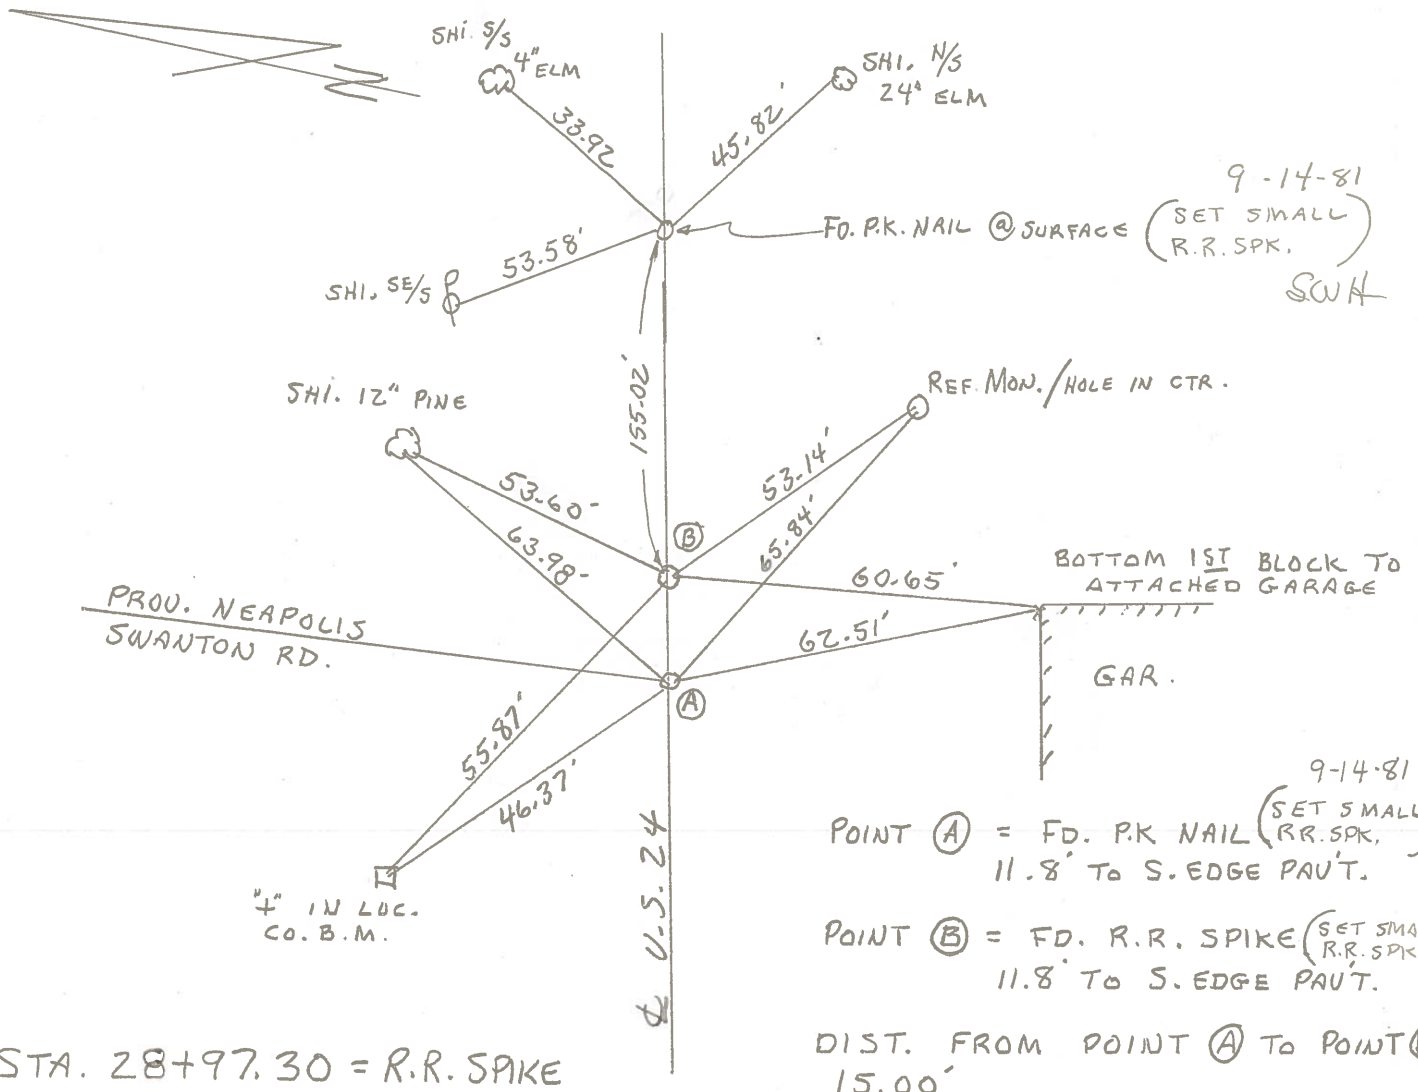 SHI. S/S
4" ELM
SHI. N/S
24" ELM
33.92
45.82'
9-14-81
FD. P.K. NAIL @ SURFACE (SET SMALL
R.R. SPK.)
SWH
53.58'
SHI. SE/S
155.02'
SHI. 12" PINE
REF. MON./HOLE IN CTR.
53.60'
53.14'
63.98'
65.84'
B
60.65'
BOTTOM 1ST BLOCK TO
ATTACHED GARAGE
PROV. NEAPOLIS
SWANTON RD.
62.51'
GAR.
A
55.87'
46.37'
"+" IN LUC.
CO. B.M.
℄ U.S. 24
9-14-81
POINT A = FD. P.K NAIL (SET SMALL
RR. SPK.
11.8' TO S. EDGE PAV'T.
POINT B = FD. R.R. SPIKE (SET SMA
R.R. SPK
11.8' TO S. EDGE PAV'T.
DIST. FROM POINT A TO POINT
15.00'
STA. 28+97.30 = R.R. SPIKE